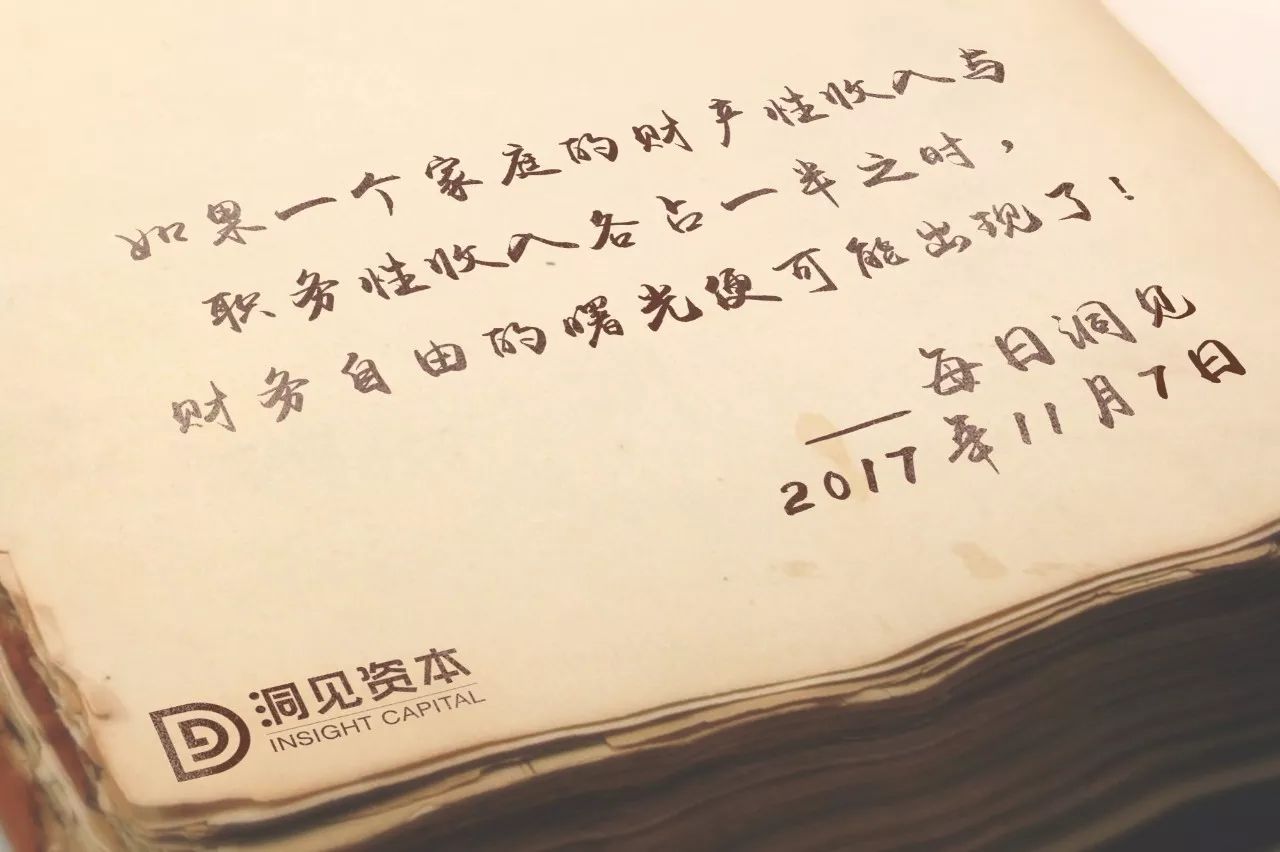 如果一个家庭的财产性收入与
职务性收入各占一半之时，
财务自由的曙光便可能出现了！
每日洞见
——2017年11月7日
洞见资本
INSIGHT CAPITAL